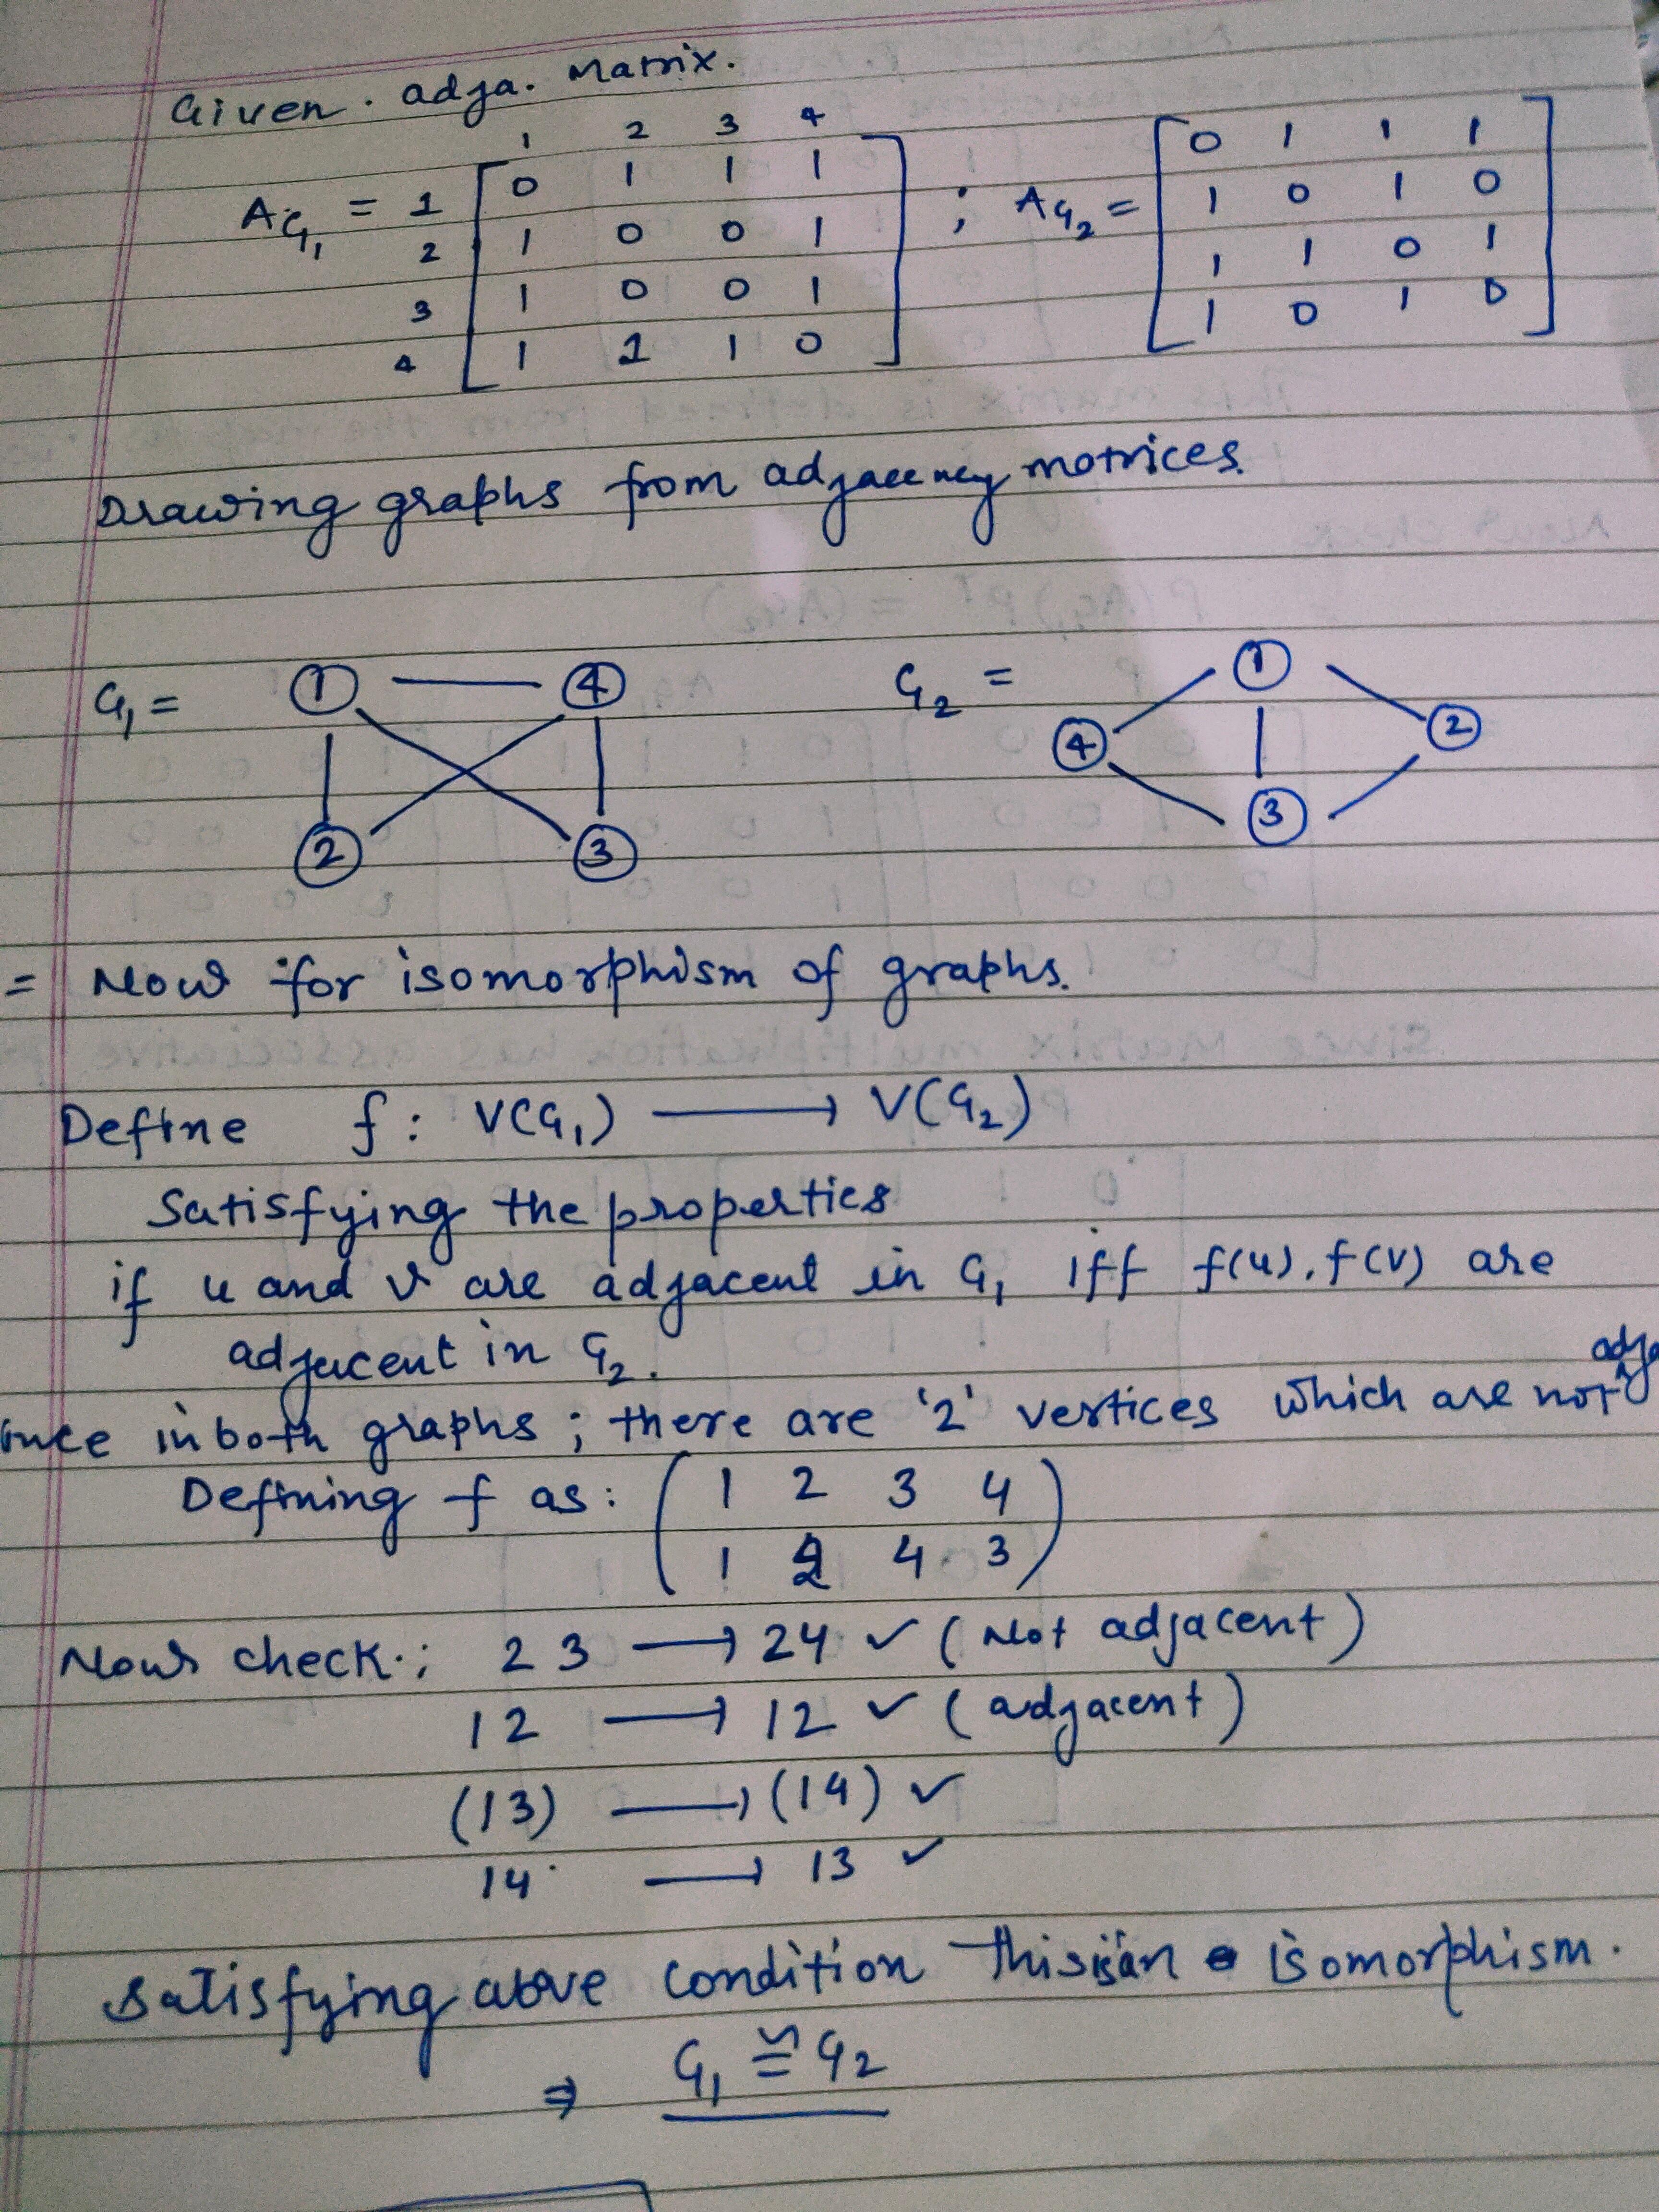 Given. adja. Matrix.
1 2 3 4
AG₁ = 1 [ 0 1 1 1 ] ; AG₂ = [ 0 1 1 1 ]
2 [ 1 0 0 1 ] [ 1 0 1 0 ]
3 [ 1 0 0 1 ] [ 1 1 0 1 ]
4 [ 1 1 1 0 ] [ 1 0 1 0 ]
Drawing graphs from adjacency motrices.
G₁ = 1 4 G₂ = 1
4 2
2 3 3
= Now for isomorphism of graphs.
Define f : V(G₁) ⟶ V(G₂)
Satisfying the properties
if u and v are adjacent in G₁ iff f(u), f(v) are
adjacent in G₂.
in both graphs ; there are '2' vertices which are not
Defining f as : ( 1 2 3 4 )
( 1 2 4 3 )
Now check : 2 3 ⟶ 24 ✓ (Not adjacent)
12 ⟶ 12 ✓ (adjacent)
(13) ⟶ (14) ✓
14 ⟶ 13 ✓
Satisfying above condition this is an isomorphism.
⇒ G₁ ≅ G₂